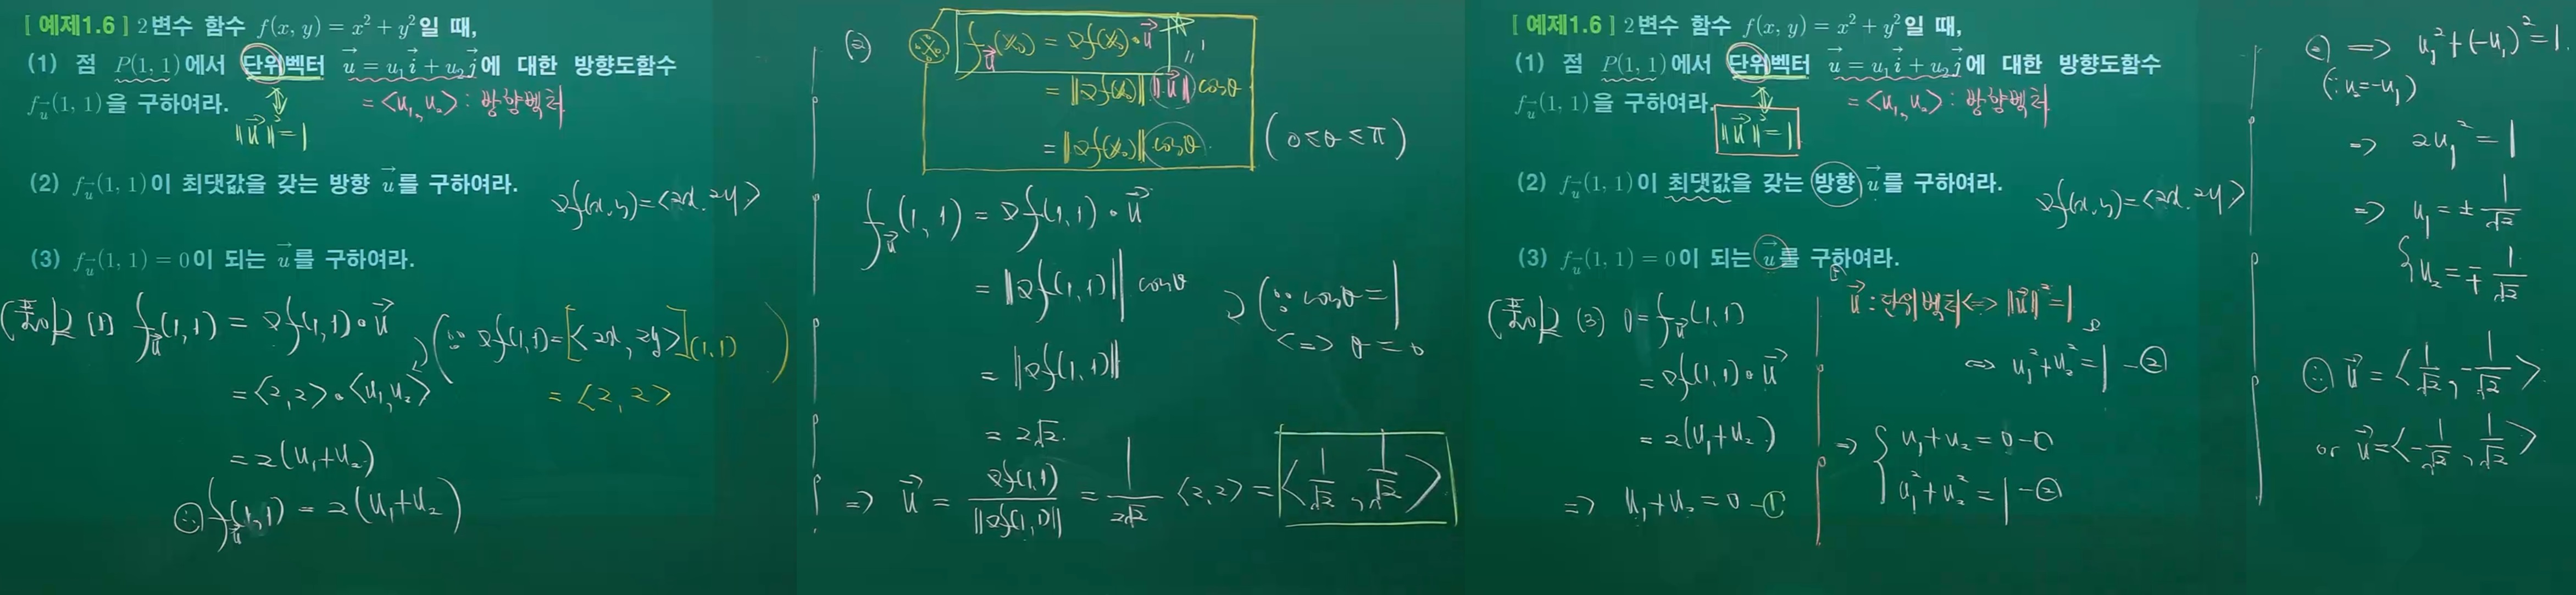 [ 예제1.6 ] 2변수 함수 f(x, y) = x² + y²일 때,
(1) 점 P(1, 1)에서 단위벡터 u⃗ = u₁i⃗ + u₂j⃗에 대한 방향도함수
f_u⃗(1, 1)을 구하여라.
= <u₁, u₂> : 방향벡터
‖u⃗‖² = 1
(2) f_u⃗(1, 1)이 최댓값을 갖는 방향 u⃗를 구하여라.
∇f(x, y) = <2x, 2y>
(3) f_u⃗(1, 1) = 0이 되는 u⃗를 구하여라.
(풀이) (1) f_u⃗(1, 1) = ∇f(1, 1)•u⃗
(∵ ∇f(1, 1) = [<2x, 2y>](1, 1)
= <2, 2> )
= <2, 2>•<u₁, u₂>
= 2(u₁+u₂)
∴ f_u⃗(1, 1) = 2(u₁+u₂)
(2) ※ f_u⃗(X₀) = ∇f(X₀)•u⃗
= ‖∇f(X₀)‖ ‖u⃗‖ cosθ
1
= ‖∇f(X₀)‖ cosθ
(0 ≤ θ ≤ π)
f_u⃗(1, 1) = ∇f(1, 1)•u⃗
= ‖∇f(1, 1)‖ cosθ
(∵ cosθ = 1
<=> θ = 0
= ‖∇f(1, 1)‖
= 2√2
=> u⃗ = ∇f(1, 1)/‖∇f(1, 1)‖ = 1/2√2 <2, 2> = <1/√2, 1/√2>
[ 예제1.6 ] 2변수 함수 f(x, y) = x² + y²일 때,
(1) 점 P(1, 1)에서 단위벡터 u⃗ = u₁i⃗ + u₂j⃗에 대한 방향도함수
f_u⃗(1, 1)을 구하여라.
= <u₁, u₂> : 방향벡터
‖u⃗‖² = 1
(2) f_u⃗(1, 1)이 최댓값을 갖는 방향 u⃗를 구하여라.
∇f(x, y) = <2x, 2y>
(3) f_u⃗(1, 1) = 0이 되는 u⃗를 구하여라.
(풀이) (3) 0 = f_u⃗(1, 1)
= ∇f(1, 1)•u⃗
= 2(u₁+u₂)
=> u₁+u₂ = 0 -①
u⃗ : 단위벡터 <=> ‖u⃗‖² = 1
<=> u₁²+u₂² = 1 -②
=> { u₁+u₂ = 0 -①
u₁²+u₂² = 1 -②
② => u₁²+(-u₁)² = 1
(∵ u₂=-u₁)
=> 2u₁² = 1
=> u₁ = ± 1/√2
{ u₂ = ∓ 1/√2
∴ u⃗ = <1/√2, -1/√2>
or u⃗ = <-1/√2, 1/√2>